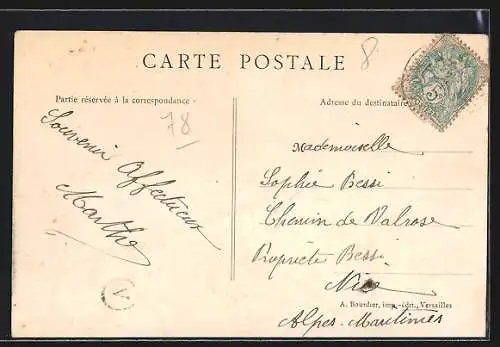 8
CARTE POSTALE
Partie réservée à la correspondance
Adresse du destinataire
78
Souvenir Affectueux
Marthe
V
5
Mademoiselle
Sophie Bessi
Chemin de Valrose
Propriété Bessi
Nice
A. Bourdier, imp.-édit., Versailles
Alpes-Maritimes